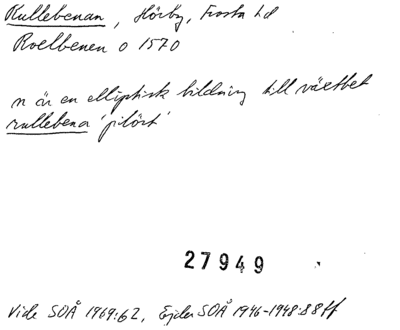 Rullebenan, Hörby, Frosta hd
Roelbenen o 1570
n är en elliptisk bildning till växtbet
rullebena 'pilört'
27949
Vide SOÅ 1969:62, Ejder SOÅ 1946-1948:88ff